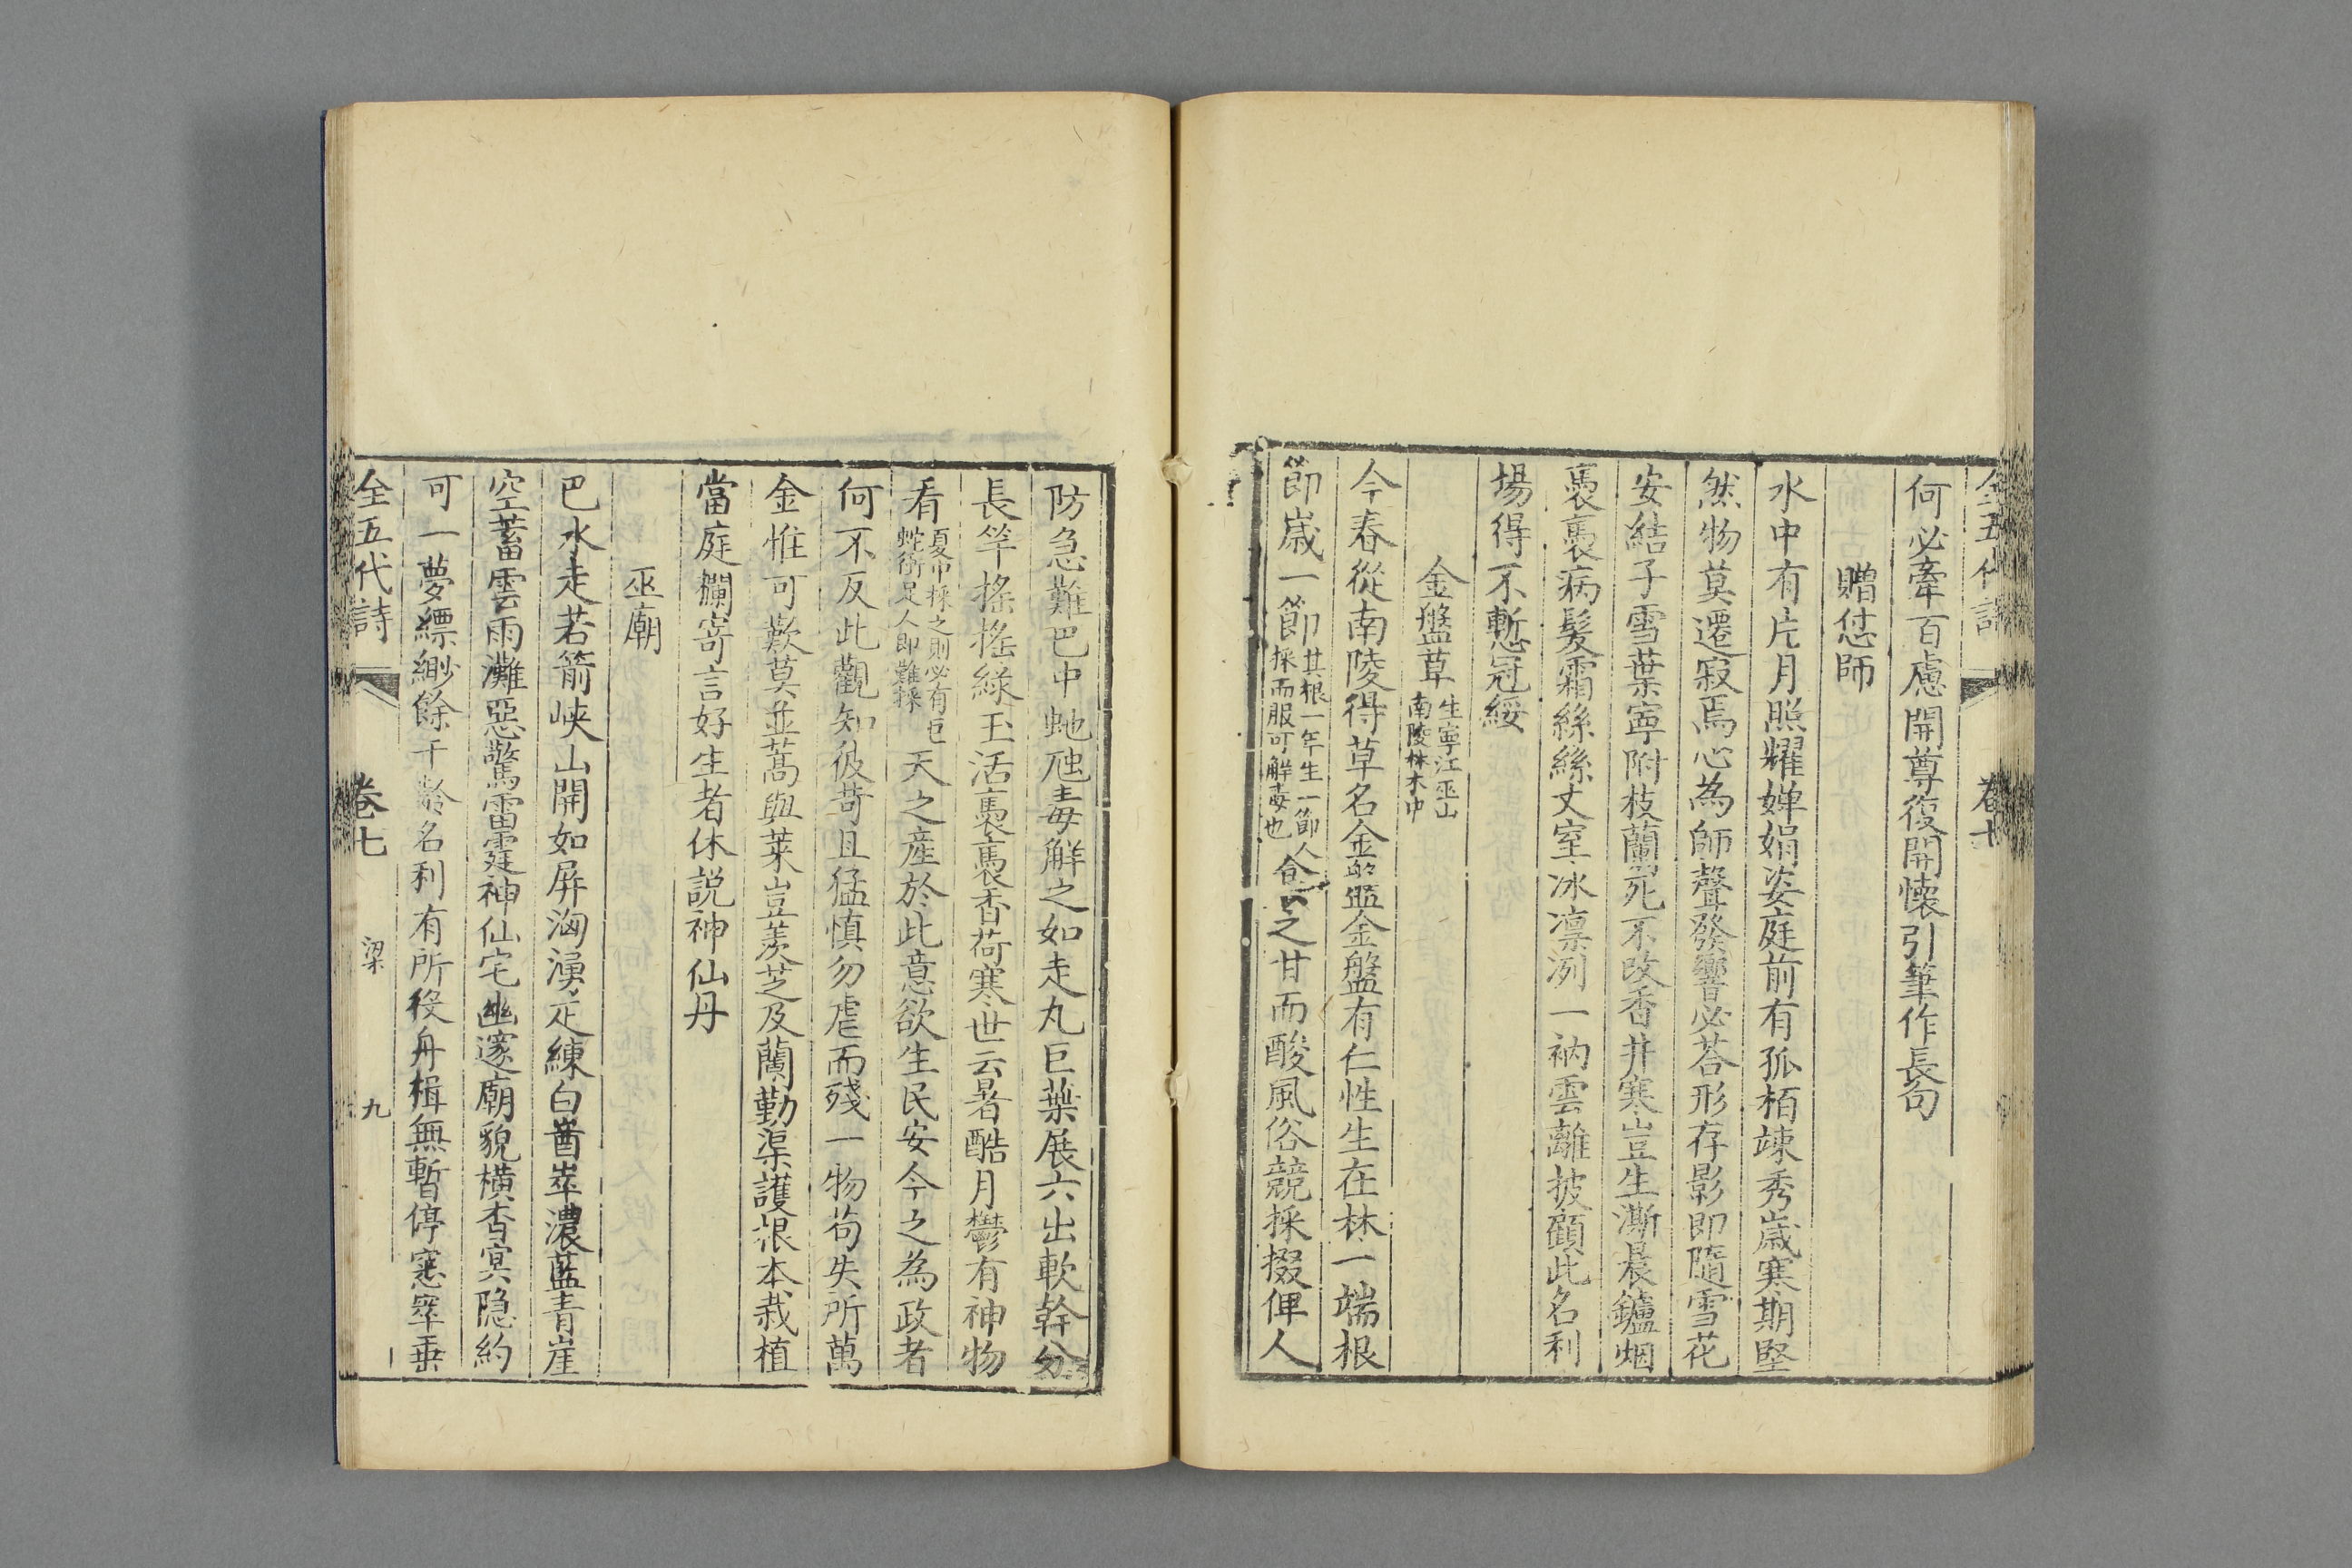 全五代詩 卷七
何必牽百慮開尊復開懷引筆作長句
贈恁師
水中有片月照耀嬋娟姿庭前有孤栢竦秀歲寒期堅
然物莫遷寂焉心為師聲發響必荅形存影即隨雪花
安結子雪葉寧附枝蘭死不改香井寒豈生澌晨鑪烟
裊裊病髮霜絲絲丈室冰凛冽一衲雲離披顧此名利
場得不慙冠綏
金盤草生寧江巫山
南陵林木中
今春從南陵得草名金盤金盤有仁性生在林一端根
節歲一節其根一年生一節人
採而服可解毒也食之甘而酸風俗競採掇俾人
防急難巴中虵虺毒解之如走丸巨葉展六出軟幹分
長竿搖搖綠玉活裊裊香荷寒世云暑酷月鬱有神物
看夏中採之則必有巨
蛇衛足人即難採天之產於此意欲生民安今之為政者
何不反此觀知彼苛且猛慎勿虐而殘一物苟失所萬
金惟可歎莫並蒿與萊豈羨芝及蘭勤渠護根本栽植
當庭欄寄言好生者休説神仙丹
巫廟
巴水走若箭峽山開如屏洶湧疋練白崷崒濃藍青崖
空蓄雲雨灘惡驚雷霆神仙宅幽邃廟貌橫杳冥隐約
可一夢縹緲餘千齡名利有所役舟楫無暫停窸窣垂
全五代詩 卷七 梁 九